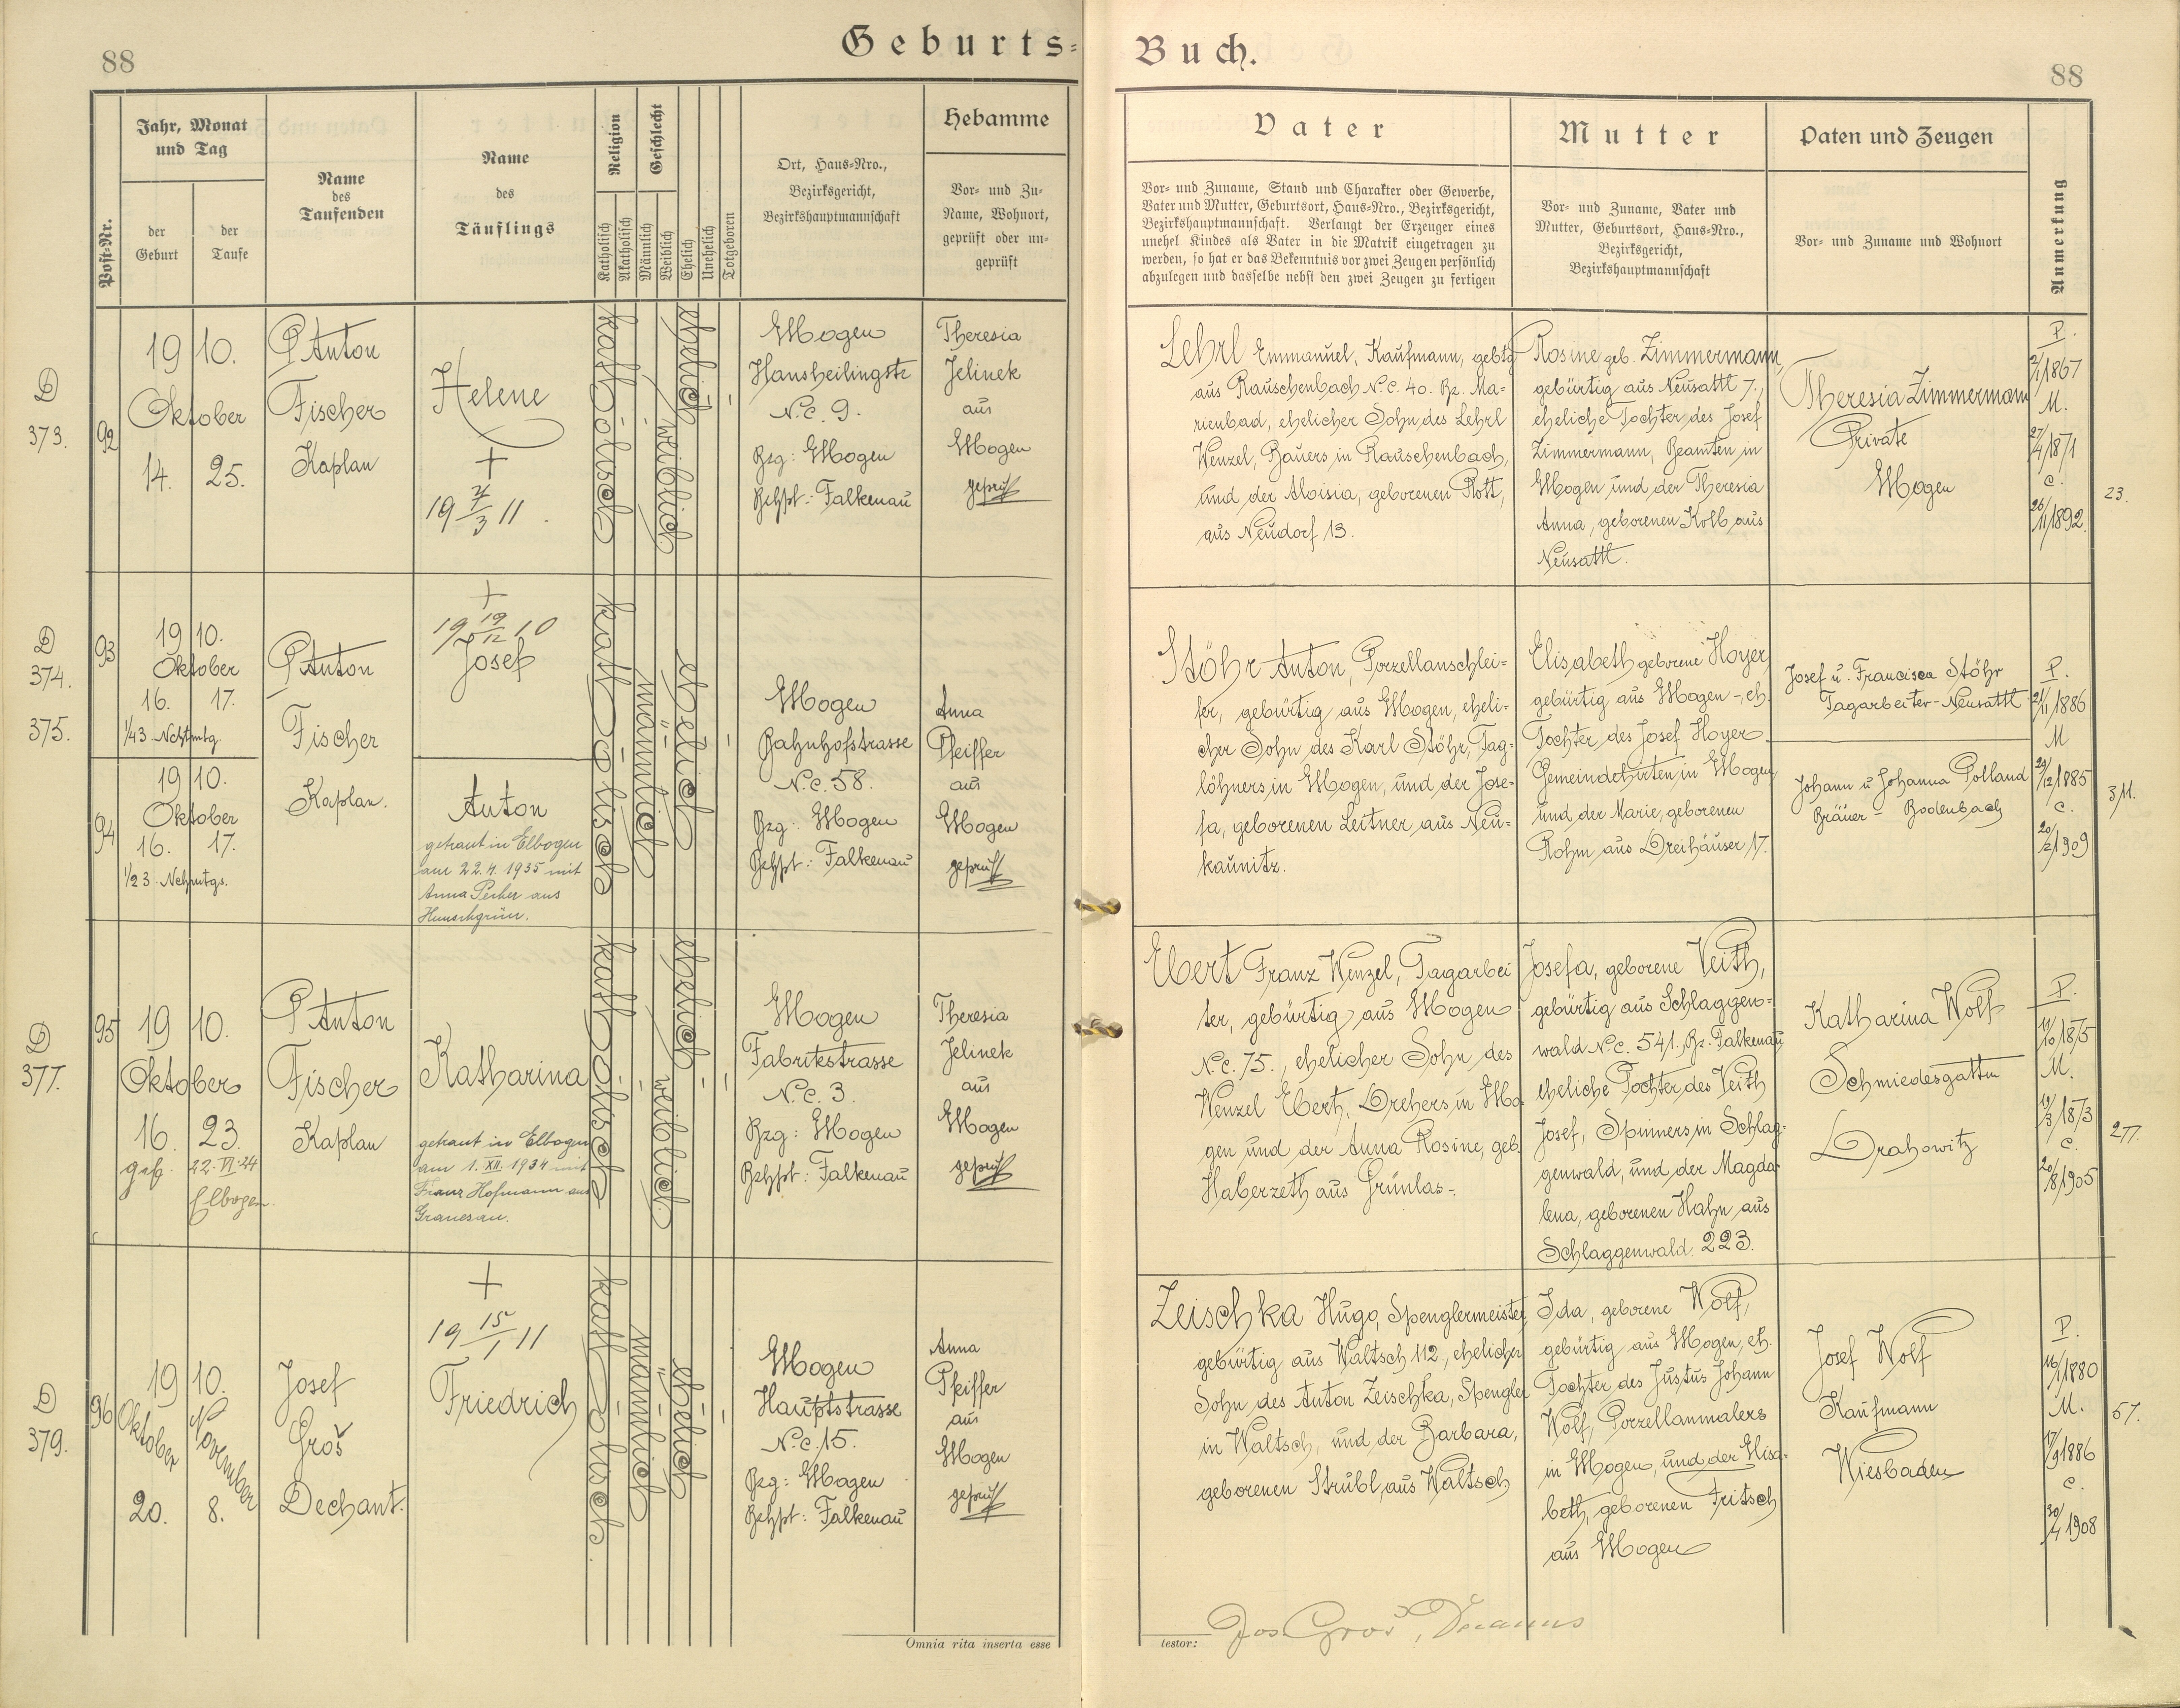 88
Geburts=
Post-Nr.
Jahr, Monat
und Tag
der
Geburt
der
Taufe
Name
des
Taufenden
Name
des
Täuflings
Religion
Katholisch
Akatholisch
Geschlecht
Männlich
Weiblich
Ehelich
Unehelich
Totgeboren
Ort, Haus-Nro.,
Bezirksgericht,
Bezirkshauptmannschaft
Hebamme
Vor- und Zu-
Name, Wohnort,
geprüft oder un-
geprüft
D
373.
92
19 10.
Oktober
14. 25.
P. Anton
Fischer
Kaplan
Helene
+
katholisch
weiblich
ehelich
Elbogen
Hansheilingstr
N.c. 9.
Bzg: Elbogen
Behpt: Falkenau
Theresia
Jelinek
aus
Elbogen
geprüft
D
374.
375.
93
19 10.
Oktober
16. 17.
1/43 Nchtmtg.
94
19 10.
Oktober
16. 17.
1/23 Nchmtgs.
P. Anton
Fischer
Kaplan.
+
19 19/12 10
Josef
Anton
getraut in Elbogen
am 22.4. 1935 mit
Anna Pecher aus
katholisch
männlich
ehelich
Elbogen
Bahnhofstrasse
N.c. 58.
Bzg: Elbogen
Behpt: Falkenau
Anna
Pfeiffer
aus
Elbogen
geprüft
D
377.
95
19 10.
Oktober
16. 23.
22.VI.24
Elbogen
P. Anton
Fischer
Kaplan
Katharina
getraut in Elbogen
am 1. XII. 1934 mit
Franz Hofmann aus
Granesau.
katholisch
weiblich
ehelich
Elbogen
Fabrikstrasse
N.c. 3.
Bzg: Elbogen
Behpt: Falkenau
Theresia
Jelinek
aus
Elbogen
geprüft
D
379.
96
19 10.
Oktober November
20. 8.
Josef
Groš
Dechant.
+
19 15/1 11
Friedrich
katholisch
männlich
ehelich
Elbogen
Hauptstrasse
N.c. 15.
Bzg: Elbogen
Behpt: Falkenau
Anna
Pfeiffer
aus
Elbogen
geprüft
Omnia rita inserta esse
Buch.
88
Vater
Vor- und Zuname, Stand und Charakter oder Gewerbe,
Vater und Mutter, Geburtsort, Haus-Nro., Bezirksgericht,
Bezirkshauptmannschaft. Verlangt der Erzeuger eines
unehel Kindes als Vater in die Matrik eingetragen zu
werden, so hat er das Bekenntnis vor zwei Zeugen persönlich
abzulegen und dasselbe nebst den zwei Zeugen zu fertigen
Mutter
Vor- und Zuname, Vater und
Mutter, Geburtsort, Haus-Nro.,
Bezirksgericht,
Bezirkshauptmannschaft
Paten und Zeugen
Vor- und Zuname und Wohnort
Anmerkung
Lehrl Emmanuel, Kaufmann, gebtg
aus Rauschenbach N.c. 40. Bz. Ma-
rienbad, ehelicher Sohn des Lehrl
Wenzel, Bauers in Rauschenbach,
und der Aloisia, geborenen Rott,
aus Neudorf 13.
Rosine geb. Zimmermann,
gebürtig aus Neusattl 7.,
eheliche Tochter des Josef
Zimmermann, Beamten in
Elbogen und der Theresia
Anna, geborenen Kolb aus
Neusattl.
Theresia Zimmermann
Private
Elbogen
P.
2/1 1867
M.
27/4 1871
C.
26/11 1892.
23.
Stöhr Anton, Porzellanschlei-
fer, gebürtig aus Elbogen, eheli-
cher Sohn des Karl Stöhr, Tag-
löhners in Elbogen, und der Jose-
fa, geborenen Leitner aus Neu-
kaunitz.
Elisabeth geborene Hoyer,
gebürtig aus Elbogen -, eh.
Tochter des Josef Hoyer
Gemeindehirten in Elbogen,
und der Marie, geborenen
Rohm aus Dreihäuser 17.
Josef u. Francisca Stöhr
Tagarbeiter - Neusattl
Johann u Johanna Polland
Bräuer - Bodenbach
P.
21/11 1886
M
29/12 1885
C.
20/2 1909
311.
Ebert Franz Wenzel, Tagarbei
ter, gebürtig aus Elbogen
N.c. 75., ehelicher Sohn des
Wenzel Ebert, Drehers in Elbo-
gen und der Anna Rosine, geb.
Haberzeth aus Grünlas -.
Josefa, geborene Veith,
gebürtig aus Schlaggen-
wald N.c. 541., Bz. Falkenau
eheliche Tochter des Veith
Josef, Spinners in Schlag-
genwald, und der Magda-
lena, geborenen Hahn aus
Schlaggenwald. 223.
Katharina Wolf
Schmiedesgattin
Drahowitz
P.
19/10 1875
M.
19/3 1873
C.
20/8 1905
277.
Zeischka Hugo, Spenglermeister,
gebürtig aus Waltsch 112., ehelicher
Sohn des Anton Zeischka, Spengler
in Waltsch, und der Barbara,
geborenen Strubl, aus Waltsch
Ida, geborene Wolf,
gebürtig aus Elbogen, eh.
Tochter des Justus Johann
Wolf, Porzellanmalers
in Elbogen, und der Elisa-
beth, geborenen Fritsch
aus Elbogen
Josef Wolf
Kaufmann
Wiesbaden
P.
16/1 1880
M.
17/9 1886
C.
30/4 1908
57.
testor:
Jos Groš, Decanus